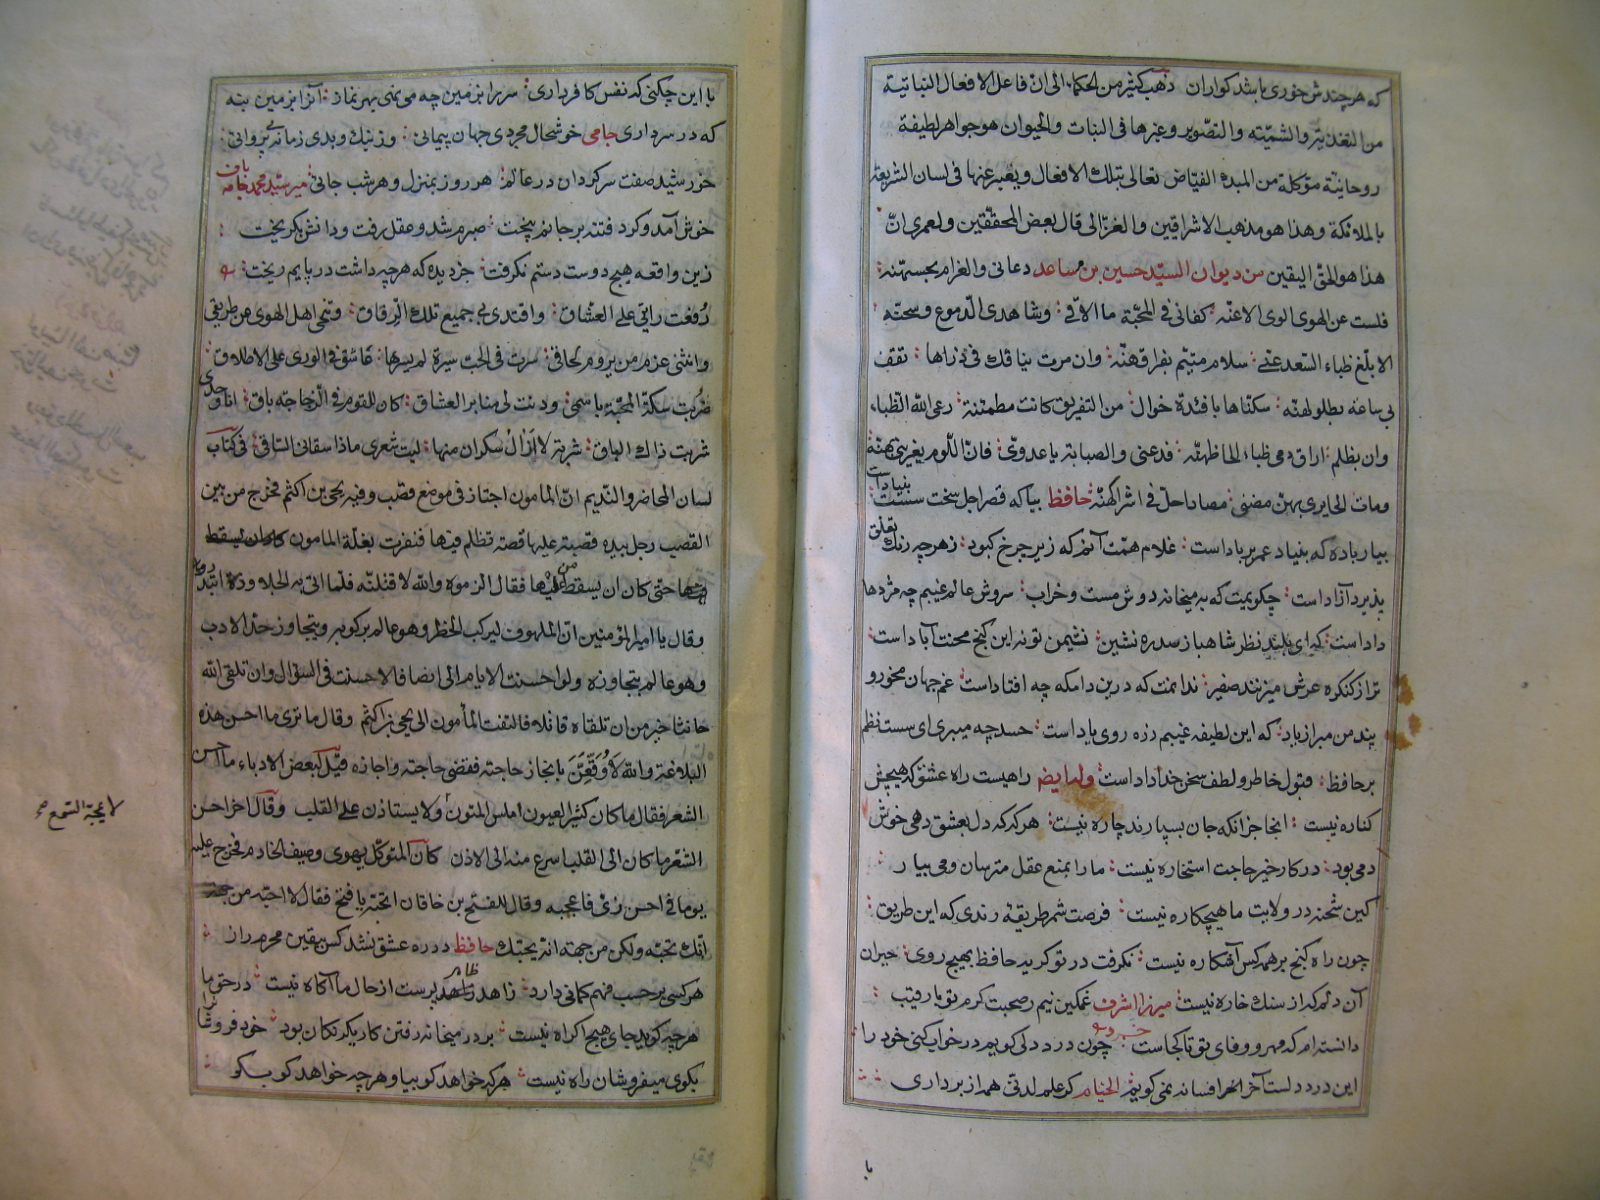 که هر چند ش خوری باشد کواران ذهب کثیر من الحکماء الی ان فاعل الافعال النباتیة
من التغذیة والتنمیة والتصویر وغیرها فی النبات والحیوان هو جواهر لطیفة
روحانیّة موکلة من المبدء الفیّاض تعالی بتلک الافعال ویعبر عنها فی لسان الشریعة
بالملائکة وهذا هو مذهب الاشراقیین والغزالی قال بعض المحققین ولعمری انّ
هذا هو الحق الیقین من دیوان السیّد حسین بن مساعد دعانی والغرام بحسنهنه
فلست عن الهوی الوی الاعنه کفانی فی المحبّة ما الاقی وشاهدی الدموع وسحنه
الا بلّغ ظباء السعد عنی سلام متیّم بفراقهنّه وان مرت نیاقک فی ذراها تقف
بی ساعة بطلولهنّه سکناها بافئدة خوال من التفریق کانت مطمئنة رعی الله الظباء
وان بظلم اراق دمی ظباء الحاظهنّه فدعنی والصبابة یا عدولی فانّ اللوم یغیر
بیا که قصر امل سخت سست بنیاد است حافظ
بیار باده که بنیاد عمر بر باد است غلام همّت آنم که زیر چرخ کبود زهر چه رنک تعلق
پذیرد آزاد است چکویمت که بمیخانه دوش مست و خراب سروش عالم غیبم چه مژدها
داد است که ای بلند نظر شاهباز سدره نشین نشیمن تو نه این کنج محنت آباد است
ترا ز کنکره عرش میزنند صفیر ندانمت که درین دامکه چه افتاد است غم جهان مخور و
پند من مبر از یاد که این لطیفه غیبم زره روی یاد است حسد چه میبری ای سست نظم
بر حافظ قبول خاطر و لطف سخن خداداد است وله ایضا راهیست راه عشق که هیچش
کناره نیست انجا جز انکه جان بسپارند چاره نیست هر که که دل بعشق دهی خوش
دمی بود در کار خیر حاجت استخاره نیست ما را بمنع عقل مترسان و می بیار
کین شحنه در ولایت ما هیچکاره نیست فرصت شمر طریقه رندی که این طریق
چون راه کنج بر همه کس آشکاره نیست نکرفت در تو کریه حافظ بهیچ روی حیران
آن دلم که از سنک خاره نیست میرزا اشرف غمکین نیم ز صحبت کرم تو با رقیب
دانسته ام که مهر و وفای تو تا کجاست چون درد دلی کویم در خواب کنی خود را
این درد دلست آخر افسانه نمی کویم الخیام کر علم لدنی همه از بر داری
با
با این چکنی که نفس کافر داری سر را بزمین چه مینهی بهر نماز آنرا بزمین بنه
که در سر داری جامی خوشحال مجردی جهان پیمائی وز نیک و بد زمانه بی پروائی
خورشید صفت سرکردان در عالم هر روز بمنزل و هر شب جائی میر سیّد محمد جامه باف
خوش آمد و کرد فتنه بر جانم بیخت صبرم شد و عقل رفت و دانش بکریخت
زین واقعه هیچ دوست دستم نکرفت جز دیده که هر چه داشت در پایم ریخت
رُفعت رایتی علی العشاق واقتدی بی جمیع تلک الرفاق وتنحی اهل الهوی من طریقی
وانثنی عزم من یروم لحاقی سرت فی الحب سیرة لم یسرها عاشق فی الوری علی الاطلاق
ضربت سکة المحبة باسمی ودنت لی منابر العشاق کان للقوم فی الزجاجة باق انا وحدی
شربت ذاک الباقی شربة لا ازالُ سکران منها لیت شعری ماذا سقانی الساقی فی کتاب
لسان المحاضر والندیم انّ المامون اجتاز فی موضع قصب وفیه یحیی بن اکثم فخرج من بین
القصب رجل بیده قصبة علیها قصة تظلم فیها فنفرت بغلة المامون
حتی کان ان یسقط من علیها فقال الزموه والله لاقتلنّه فلما اتی به الجلاد وردّه ابتدر
وقال یا امیر المؤمنین انّ الملهوف لیرکب الخطر وهو عالم برکوبه ویتجاوز حدّ الادب
وهو عالم بتجاوزه ولو احسنت الایام الی انصافا لاحسنت فی السؤال وان تلقی الله
حانثا خیر من ان تلقاه قاتلا فالتفت المأمون الی یحیی بن اکثم وقال ما تری ما احسن هذه
البلاغة والله لا وُقّعنّ بانجاز حاجته فقضی حاجته واجازه قیل لبعض الادباء ما احسن
الشعر فقال ما کان کثیر العیون املس المتون ولا یستاذن علی القلب وقال اخر احسن
الشعر ما کان الی القلب اسرع منه الی الاذن کان المتوکل یهوی وصیف الخادم فخرج علیه
یوما فی احسن زیّ فاعجبه وقال للفتح بن خاقان اتحبّه یا فتح فقال لا احبّه من
انّک تحبّه ولکن من جهة انّه یحبّک حافظ در ره عشق نشد کس بیقین محرم راز
هر کسی بر حسب فهم کمانی دارد زاهد ظاهر پرست از حال ما آکاه نیست در حق ما
هر چه کوید جای هیچ اکراه نیست بر در میخانه رفتن کار یکرنکان بود خود فروشانرا
بکوی میفروشان راه نیست هر که خواهد کو بیا و هر چه خواهد کو بکو
لا یحجبه السمع